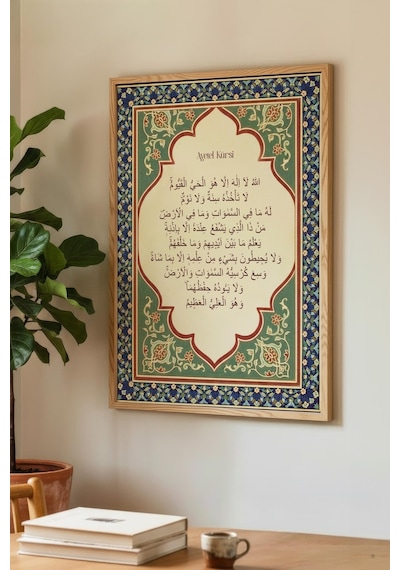 Ayetel Kürsi
اللهُ لَا إِلٰهَ إِلَّا هُوَ الْحَيُّ الْقَيُّومُ
لَا تَأْخُذُهُ سِنَةٌ وَلَا نَوْمٌ
لَهُ مَا فِي السَّمٰوَاتِ وَمَا فِي الْاَرْضِ
مَنْ ذَا الَّذِي يَشْفَعُ عِنْدَهُ إِلَّا بِإِذْنِهِ
يَعْلَمُ مَا بَيْنَ اَيْدِيهِمْ وَمَا خَلْفَهُمْ
وَلَا يُحِيطُونَ بِشَيْءٍ مِنْ عِلْمِهِ إِلَّا بِمَا شَاءَ
وَسِعَ كُرْسِيُّهُ السَّمٰوَاتِ وَالْاَرْضَ
وَلَا يَئُودُهُ حِفْظُهُمَا
وَهُوَ الْعَلِيُّ الْعَظِيمُ